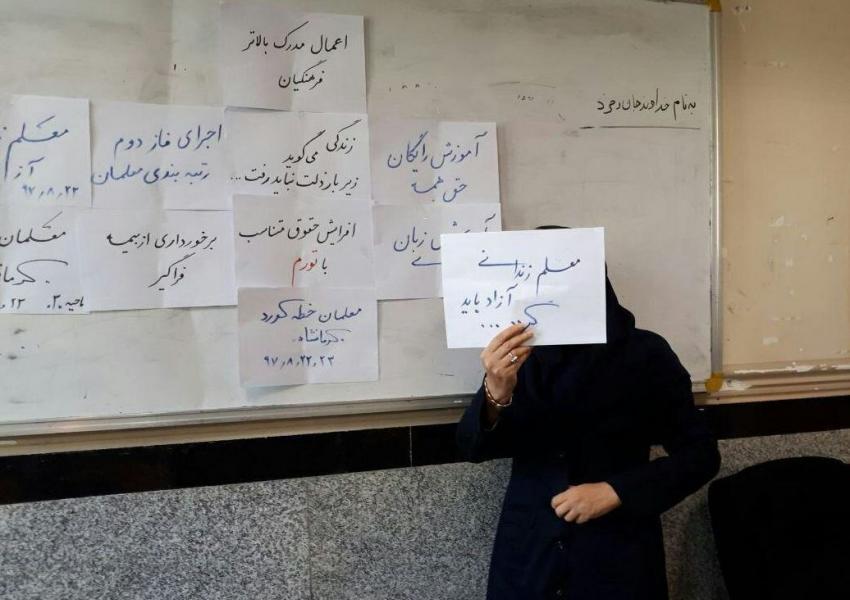 به نام خداوند جان و خرد
اعمال مدرک بالاتر
فرهنگیان
آموزش رایگان
حق همه
زندگی می گوید
زیر بار ذلت نباید رفت...
اجرای فاز دوم
رتبه بندی معلمان
معلم
آز
۹۷،۸،۲۲
زبان
افزایش حقوق متناسب
با تورم
برخورداری از بیمه
فراگیر
معلمان
کرما
ناحیه ۲۰
معلم زندانی
آزاد باید
گر.....
معلمان خطه کورد
کرمانشاه
۹۷،۸،۲۲،۲۳